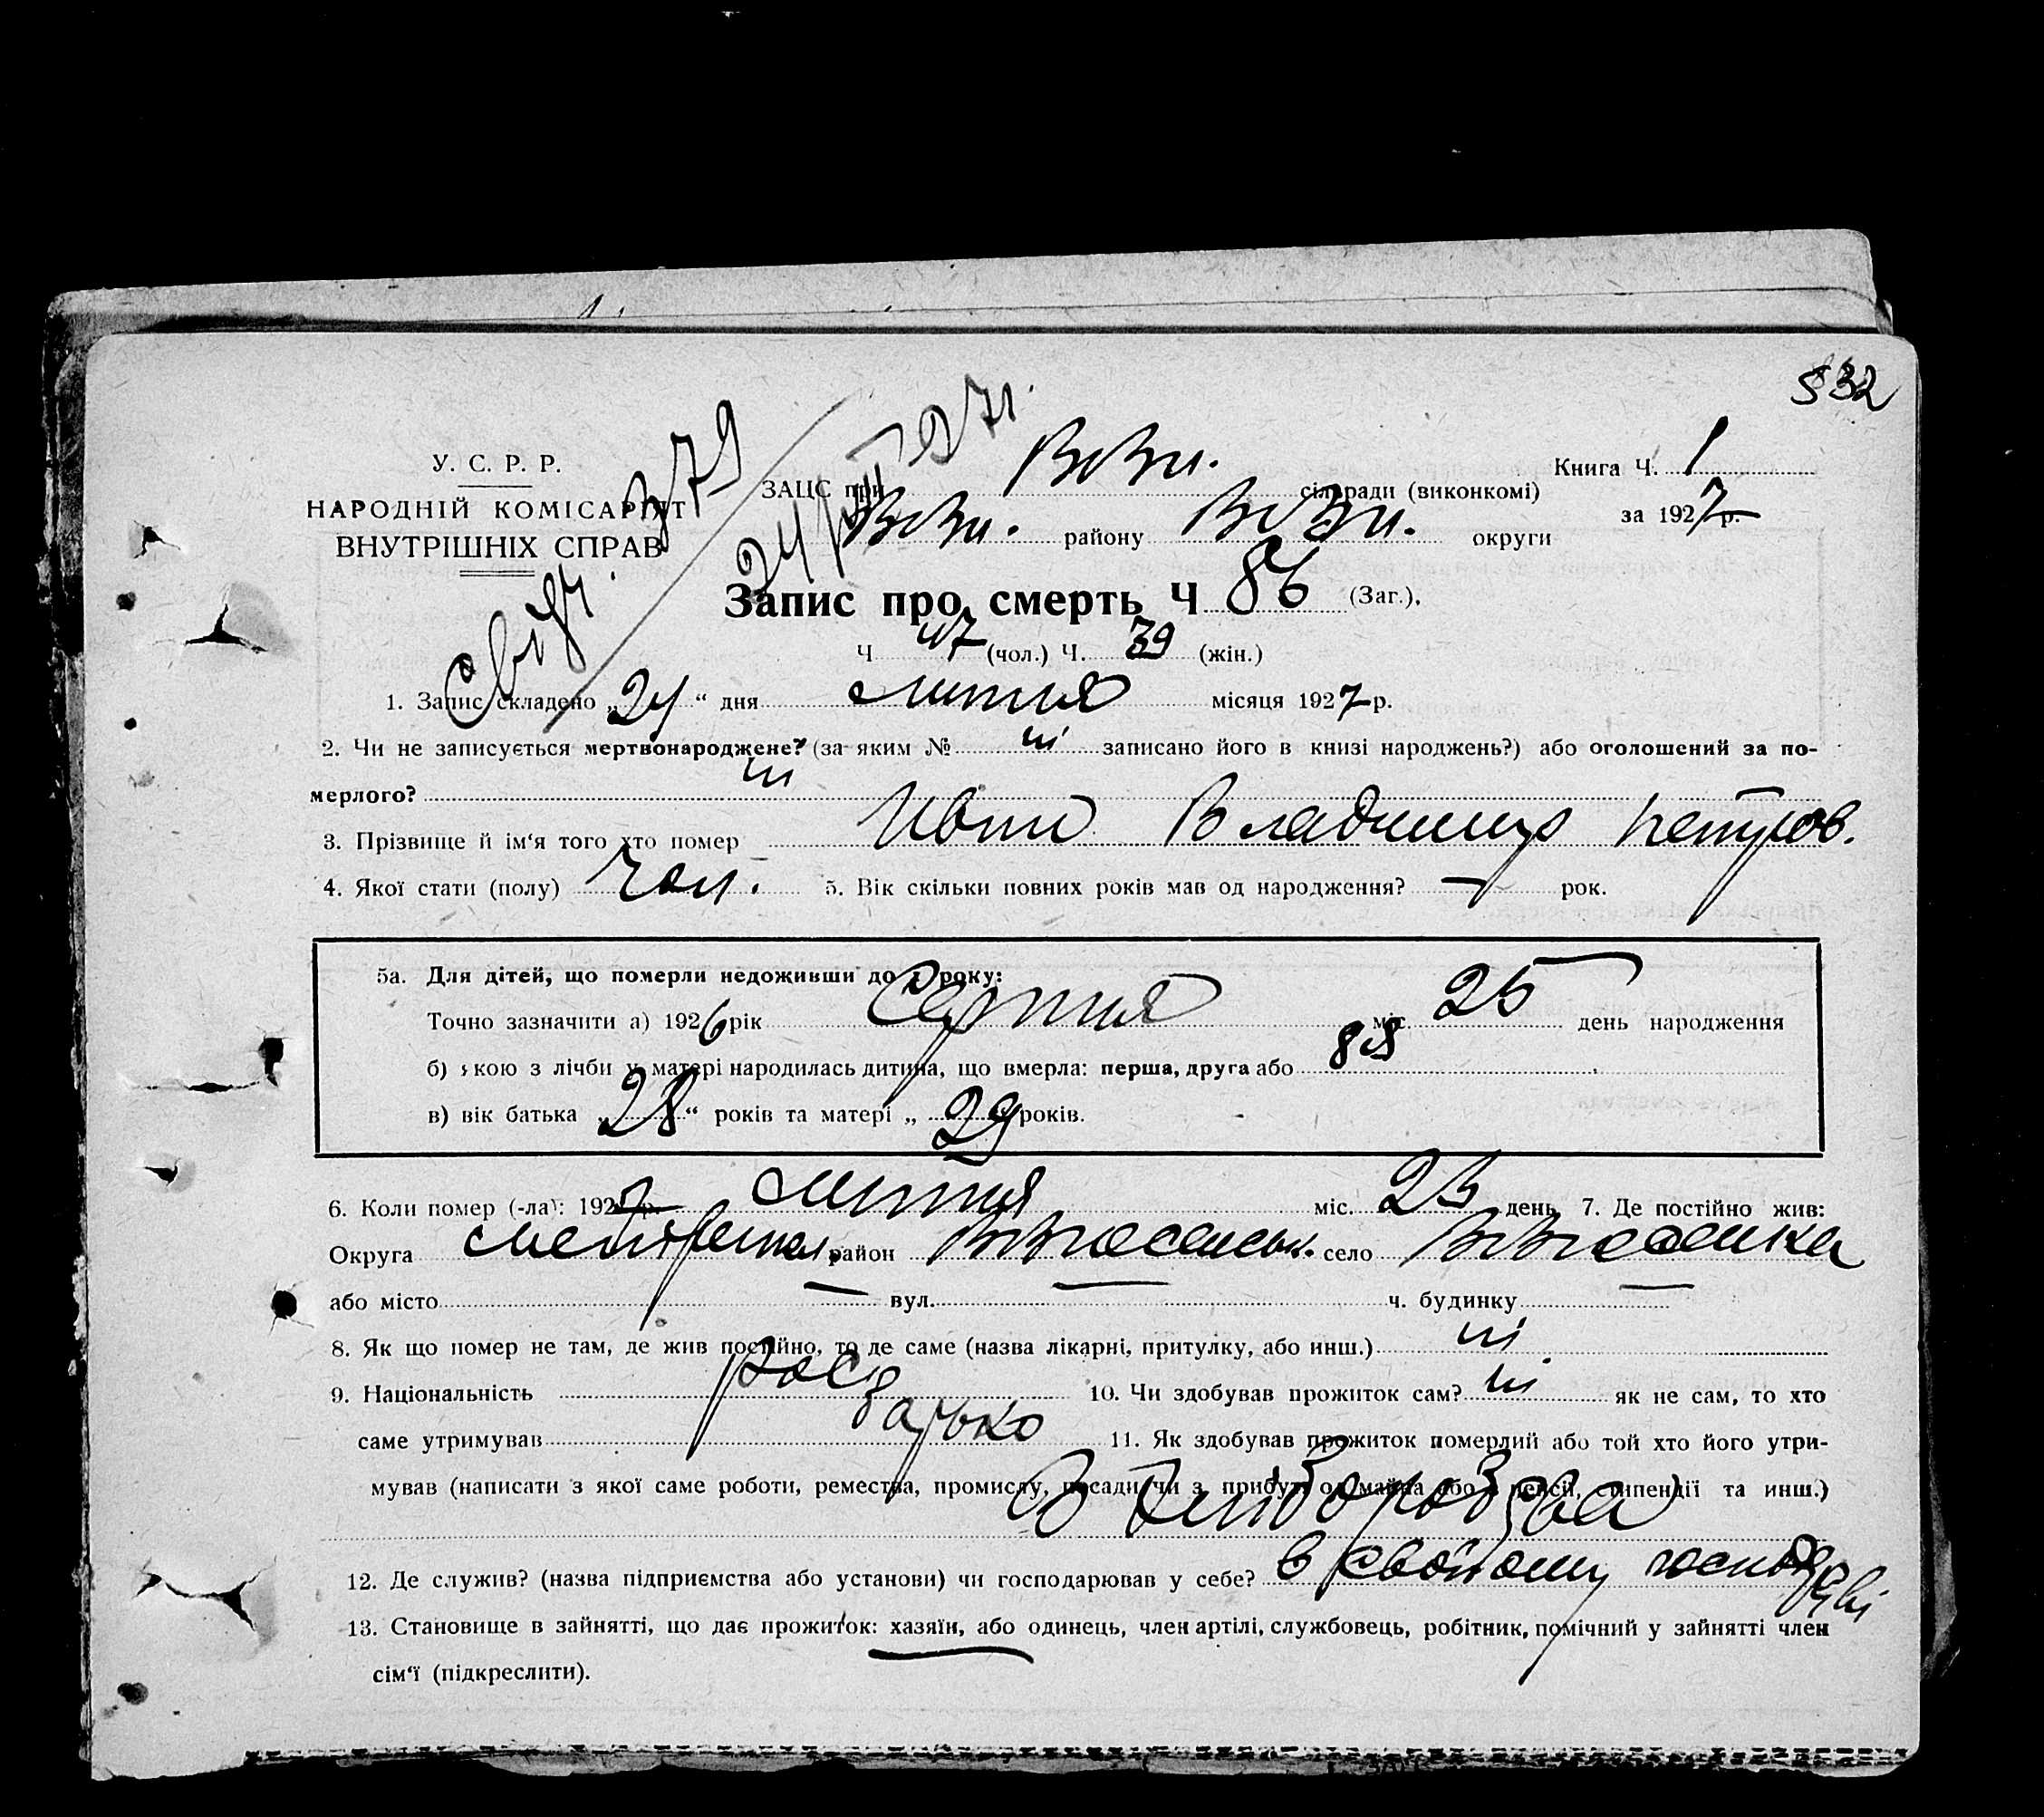 532
У. С. Р. Р.
НАРОДНІЙ КОМІСАРІЯТ
ВНУТРІШНІХ СПРАВ
379
ЗАЦС при сільради (виконкомі)
Книга Ч. 1
району округи
за 1927 р.
Запис про смерть Ч 86 (Заг.),
Ч 47 (чол.) Ч. 39 (жін.)
1. Запис складено „24“ дня липня місяця 1927 р.
2. Чи не записується мертвонароджене? (за яким № ні записано його в книзі народжень?) або оголошений за по-
мерлого? ні
3. Прізвище й ім‘я того хто помер Владимир Петров.
4. Якої стати (полу) чол. 5. Вік скільки повних років мав од народження? — рок.
5а. Для дітей, що померли недоживши до 1 року:
Точно зазначити а) 1926 рік Серпня міс. 25 день народження
б) якою з лічби у матері народилась дитина, що вмерла: перша, друга або
в) вік батька „28“ років та матері „29 років.
6. Коли помер (-ла): 1927 р. липня міс. 23 день 7. Де постійно жив:
Округа район село
або місто — вул. — ч. будинку —
8. Як що помер не там, де жив постійно, то де саме (назва лікарні, притулку, або инш.) ні
9. Національність рос 10. Чи здобував прожиток сам? ні як не сам, то хто
саме утримував батько 11. Як здобував прожиток померлий або той хто його утри-
мував (написати з якої саме роботи, ремества, промислу, посади чи з прибутк од майна або з пенсії, стипендії та инш.)
З хліборобства
12. Де служив? (назва підприємства або установи) чи господарював у себе? в своїому господарстві
13. Становище в зайнятті, що дає прожиток: хазяїн, або одинець, член артілі, службовець, робітник, помічний у зайнятті член
сім‘ї (підкреслити).